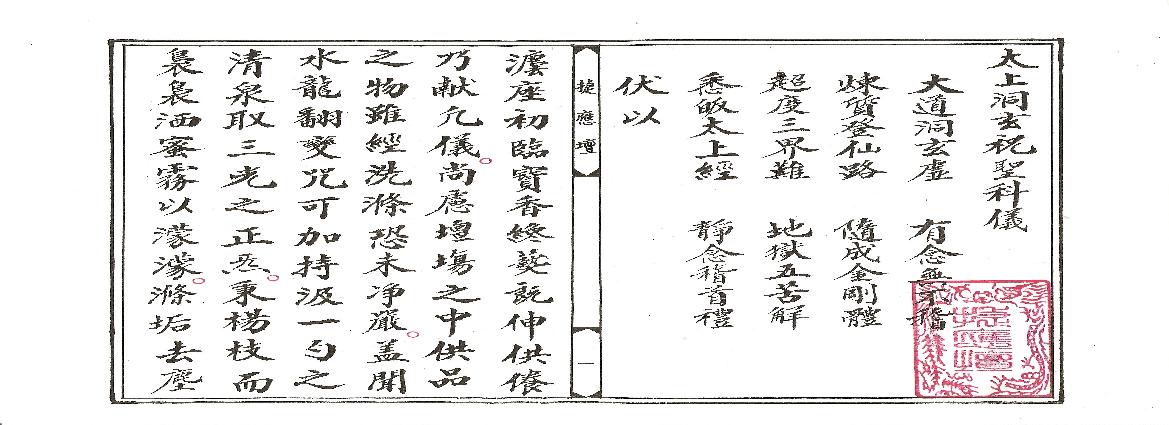 太上洞玄祝聖科儀
大道洞玄虛 有念無不
煉質登仙路 隨成金剛體
超度三界難 地獄五苦解
悉皈太上經 靜念稽首禮
伏以
捷應壇
一
瀍座初臨寶香終爇既伸供養
乃献凢儀尚慮壇塲之中供品
之物雖經洗滌恐未净嚴盖聞
水龍翻變咒可加持汲一勺之
清泉取三光之正炁秉楊枝而
裊裊洒蜜霧以濛濛滌垢去塵